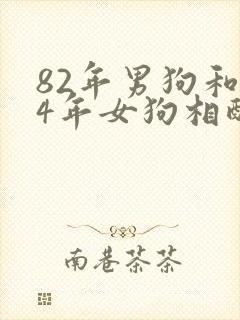 82年男狗和
4年女狗相配
南巷茶茶